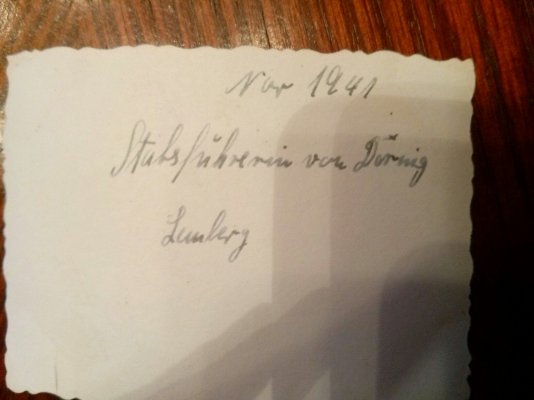 Nov 1941
Stabsführerin von Döring
Lemberg